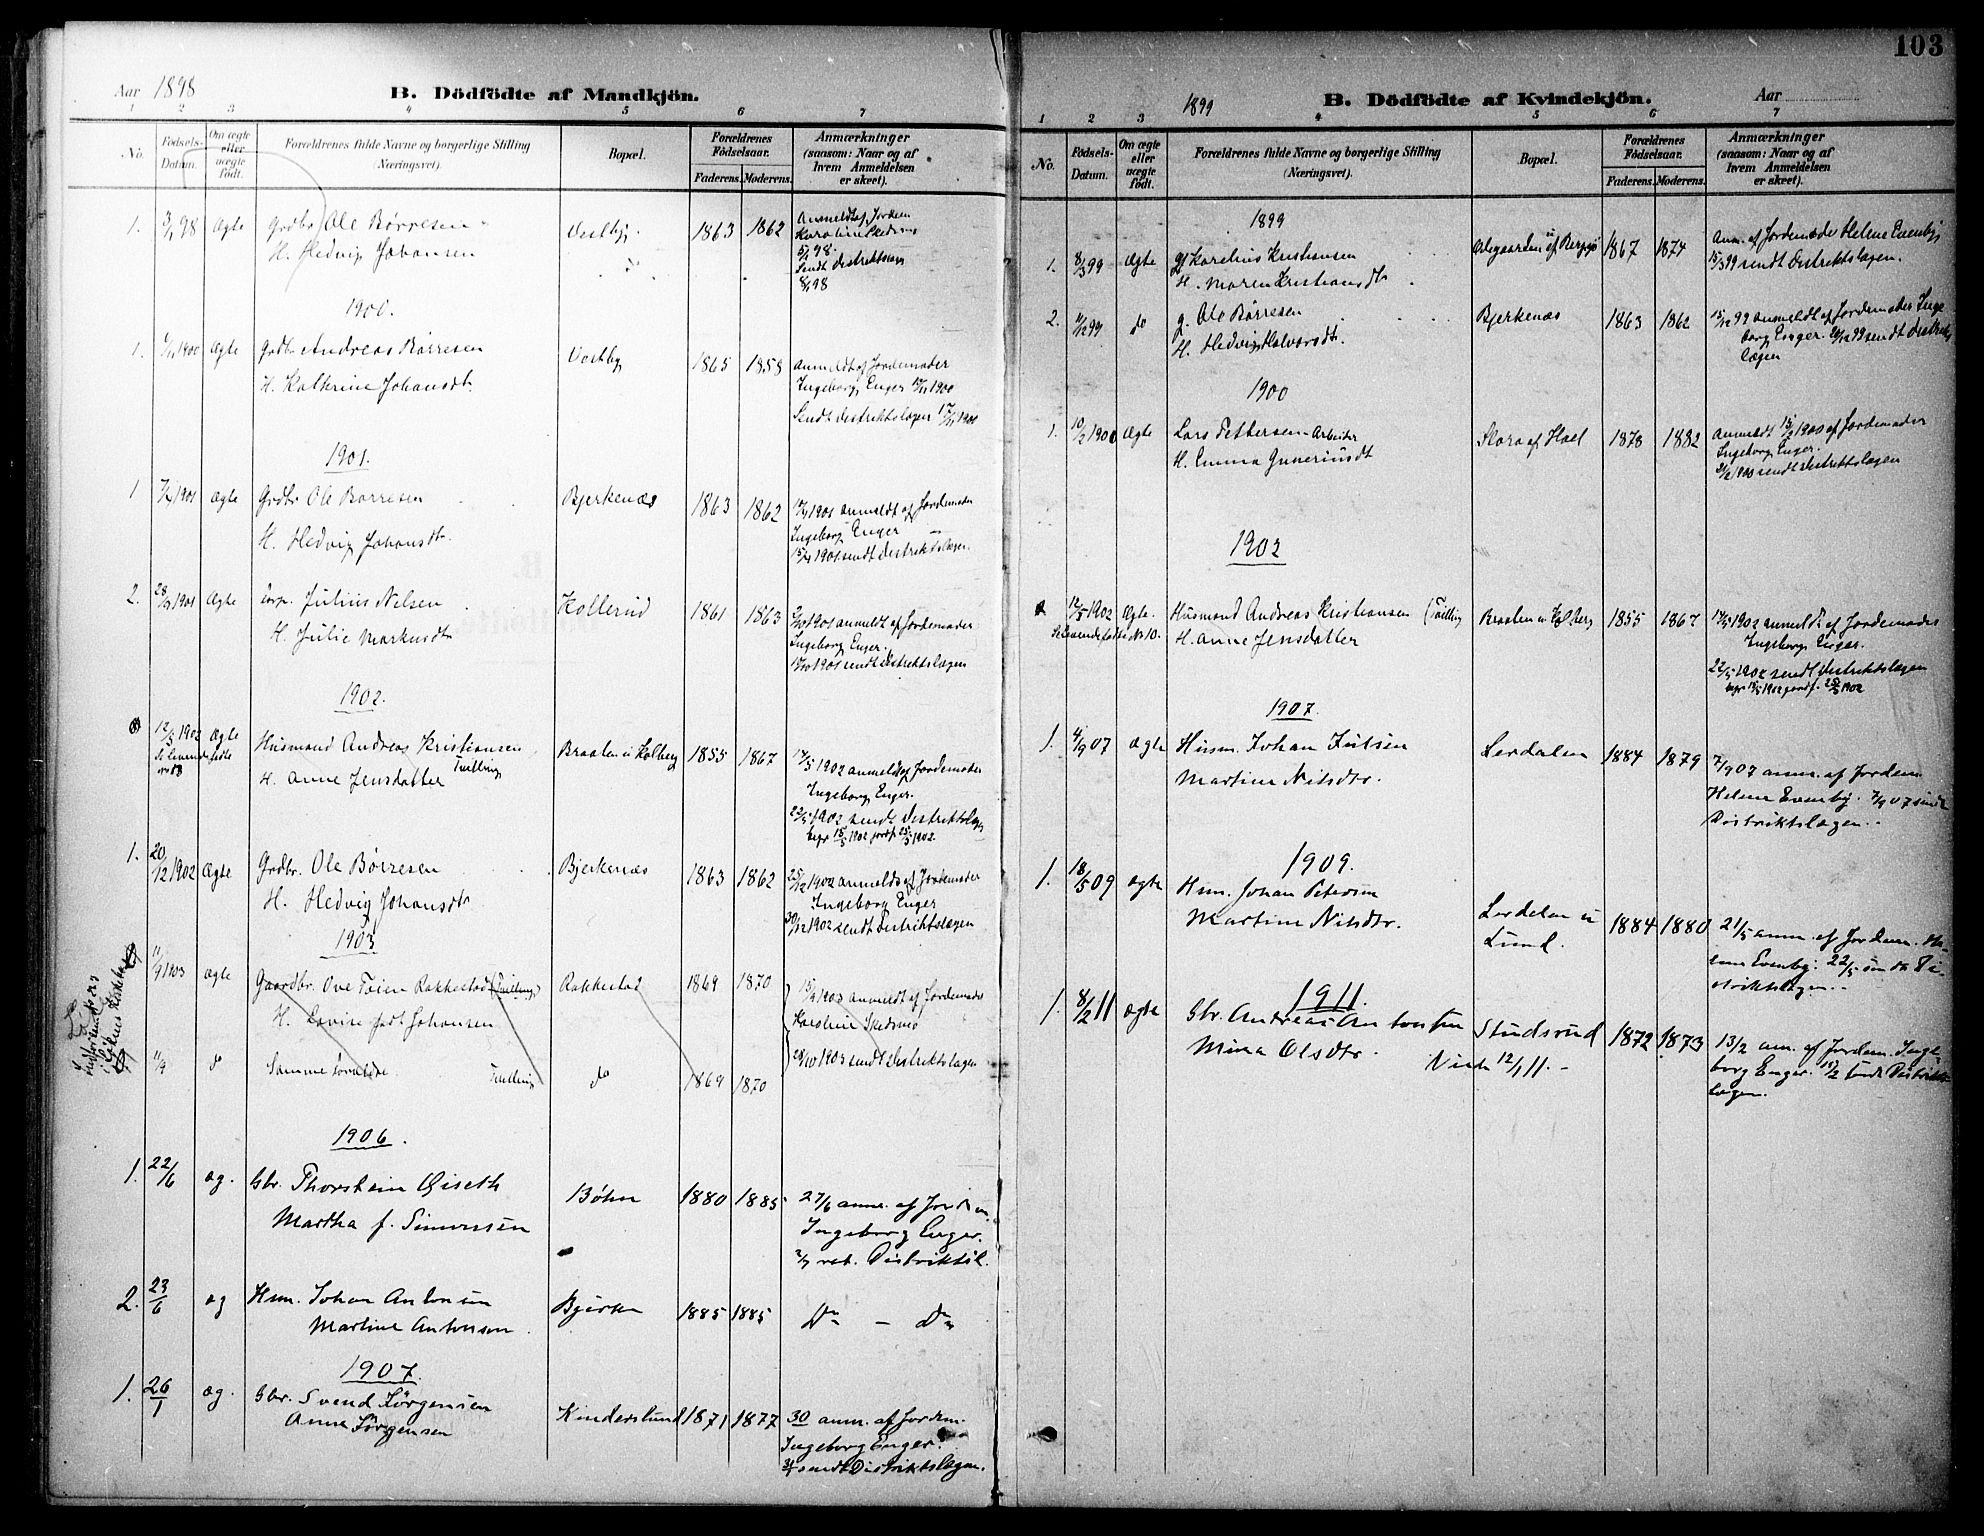 103
Aar 1898
B. Dödfödte af Mandkjön.
1 2 3 4 5 6 7
No.
Födsels-Datum.
Om ægte eller uægte født.
Forældrenes fulde Navne og borgerlige Stilling
(Næringsvei).
Bopæl.
Forældrenes Födselsaar.
Faderens. Moderens.
Anmærkninger
(saasom: Naar og af
hvem Anmeldelsen
er skeet).
1. 98 Ægte Grdbr Ole Børresen Vestby 1863 1862 Anmeldt af Jordem
H. Hedvig Johansen Karoline Skedsmo
98.
Sendt distriktslægen
8/1 98
1900.
1. 1900 Ægte Grdbr Andreas Børresen Vestby 1865 1858 Anmeldt af Jordemoder
H. Kathrine Johansdtr. Ingeborg Enger 1900
Sendt distriktslægen 1900
1901.
1 1901 Ægte Grdbr Ole Børresen Bjerkenæs 1863 1862 1901 anmeldt af Jordemoder
H. Hedvig Johansdtr. Ingeborg Enger
1901 sendt distriktslægen.
2. 1901 Ægte Julius Nilsen Kollerud 1861 1863 1901 anmeldt af Jordemoder
H. Julie Markusdtr Ingeborg Enger.
1901 sendt distriktslægen
1902.
12/5 1902 Ægte Husmand Andreas Kristiansen Braaten u Kolberg 1855 1867 17/5 1902 anmeldt af Jordemoder
Se levende fødte Tvilling
H. Anne Jensdatter Ingeborg Enger.
22/5 1902 sendt distriktslægen
begr 1902 jordf. 25/5 1902.
1. 20/12 1902 Ægte Grdbr. Ole Børresen Bjerkenæs 1863 1862 25/12 1902 anmeldt af Jordemoder
H. Hedvig Johansdtr Ingeborg Enger
30/12 1902 sendt distriktslægen
1903
11/9 1903 ægte Gaardbr. Ove Toien Rakkestad (Tvilling) Rakkestad 1869 1870 1903 anmeldt af Jordemoder
H. Lovise født Johansen Karoline Skedsmo
11/9 d Samme forældre. Tvilling do 1869 1870 1903 sendt distriktslægen
1906.
1. 22/6 æg. Gbr. Thorstein Giseth Bøhn 1880 1885 27/6 anm. af Jordem.
Martha f. Simensen Ingeborg Enger.
Distriktsl.
2. 23/6 æg Hsm. Johan Antonsen Bjerke 1885 1885 Do - Do
Martine Antonson.
1907.
1. 26/1 æg. Gbr. Svend Jörgensen Kinderslund 1871 1877 30 anm. af Jordem.
Anna Jörgensen Ingeborg Enger.
31/1 sendt Distriktslægen.
1899
B. Dödfödte af Kvindekjön.
Aar
1 2 3 4 5 6 7
No.
Födsels-Datum.
Om ægte eller uægte født.
Forældrenes fulde Navne og borgerlige Stilling
(Næringsvei).
Bopæl.
Forældrenes Födselsaar.
Faderens. Moderens.
Anmærkninger
(saasom: Naar og af
hvem Anmeldelsen
er skeet).
1899
1. 8/3 99 Ægte Karelius Kristiansen 1867 1874 Anm. af Jordemoder Helene Evenby,
H. Maren Kristiansdtr 15/3 99 sendt distriktslægen.
2. 11/12 99 do g. Ole Børresen Bjerkenæs 1863 1862 15/12 99 anmeldt af Jordemoder Inge
H. Hedvig Halvorsdtr. borg Enger. 99 sendt distrikts
lægen
1900
1. 10/2 1900 Ægte Lars Pettersen - Arbeider Flora af Hoel 1878 1882 Anmeldt 15/2 1900 af Jordemoder
H. Emma Guneriusdt Ingeborg Enger.
1900 sendt distriktslægen
1902
12/5 1902 Ægte. Husmand Andreas Kristiansen (Tvilling Braaten u Kolberg 1855 1867 17/5 1902 anmeldt af Jordemoder
Se levende fødte No 10. H. Anne Jensdatter Ingeborg Enger.
22/5 1902 sendt distriktslægen
begr 1902 jordf. 25/5 1902
1907.
1. 4/9 07 ægte Husm. Johan Lerdalen 1884 1879 7/9 07 anm. af Jordem.
Martine Nilsdtr. Helene Evenby. 7/9 07 sendt
Distriktslægen.
1909.
1. 18/5 09 ægte Hsm. Johan Petersen Lerdalen u 1884 1880 21/5 anm. af Jordem. He-
Martine Nilsdtr. Lund. lene Evenby. 22/5 sendt Di-
striktslægen.
1911.
1. 8/2 11 ægte Gbr. Andreas Antonsen Studsrud 1872 1873 13/2 anm. af Jordem. Inge-
Mina Olsdtr. Viede 12/1 11. borg Enger. 15/2 sendt Distrikts-
lægen.